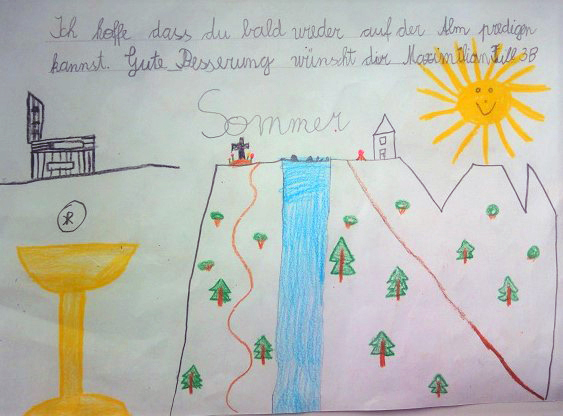 Ich hoffe dass du bald wieder auf der Alm predigen
kannst. Gute Besserung wünscht dir Maximilian 3B
Sommer